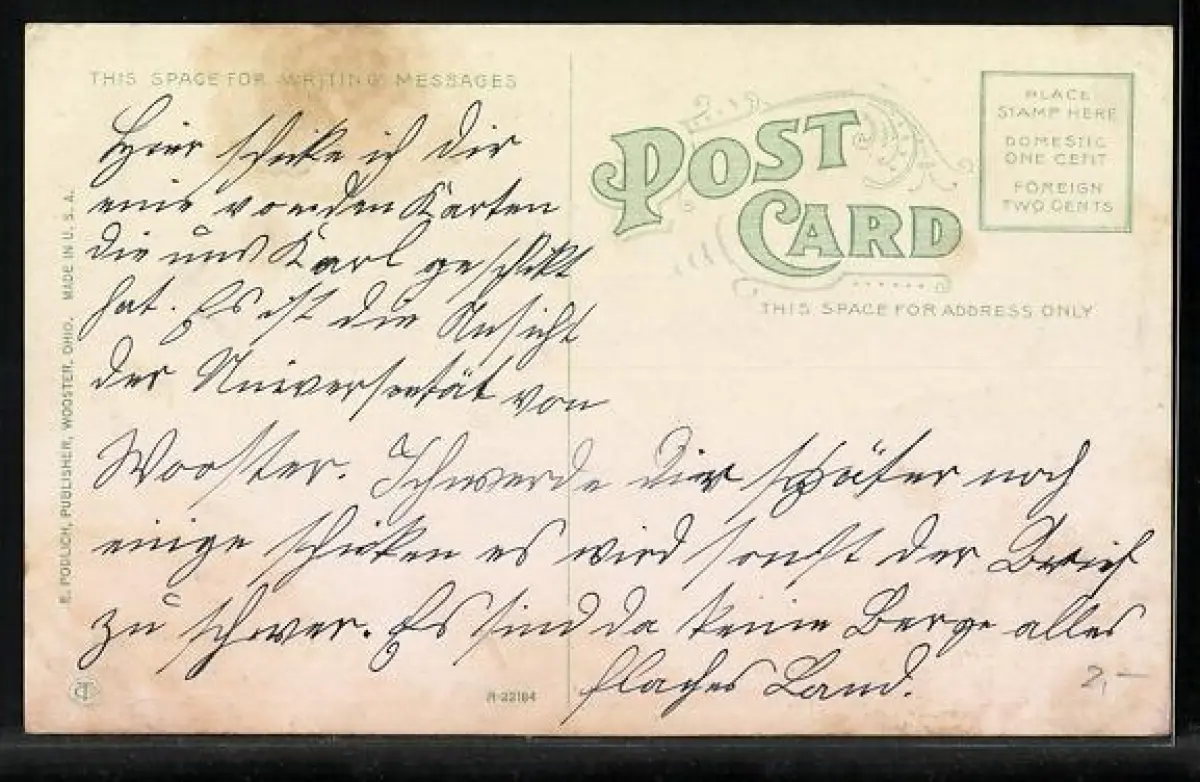 THIS SPACE FOR WRITING MESSAGES
Hier schicke ich dir
eine von den Karten
die uns Karl geschikt
hat. Es ist die Ansicht
der Universetät von
Wooster. Ich werde dir später noch
einige schicken es wird sonst der Brief
zu schwer. Es sind da keine Berge alles
flaches Land.
E. PODLICH, PUBLISHER, WOOSTER, OHIO. MADE IN U. S. A.
CT
A-22184
POST
CARD
THIS SPACE FOR ADDRESS ONLY
PLACE
STAMP HERE
DOMESTIC
ONE CENT
FOREIGN
TWO CENTS
2,–